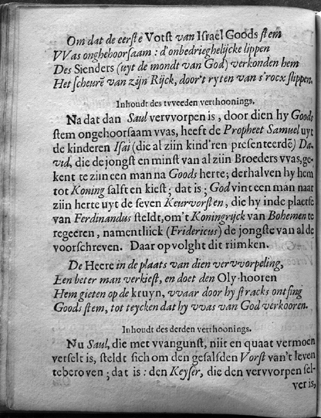 Om dat de eerste Vorst van Israël Goods stem
VVas onghehoorsaam: d'onbedrieghelijcke lippen
Des Sienders (uyt de mondt van God) verkonden hem
Het scheurē van zijn Rijck, door't ryten van s'rocx slippen.
Inhoudt des tvveeden verthoonings.
Na dat dan Saul vervvorpen is, door dien hy Goods
stem ongehoorsaam vvas, heeft de Propheet Samuel uyt
de kinderen Isai (die al zijn kind'ren presenteerdē) Da-
vid, die de jongst en minst van al zijn Broeders vvas, ge-
kent te zijn een man na Goods herte; derhalven hy hem
tot Koning salft en kiest; dat is; God vint een man naar
zijn herte uyt de seven Keurvorsten, die hy inde plaetse
van Ferdinandus steldt, om't Koningrijck van Bohemen te
regeeren, namentlick (Fridericus) de jongste van al de
voorschreven. Daar op volght dit riimken.
De Heere in de plaats van dien vervvorpeling,
Een beter man verkiest, en doet den Oly-hooren
Hem gieten op de kruyn, vvaar door hy stracks ontfing
Goods stem, tot teycken dat hy vvas van God verkooren.
Inhoudt des derden verthoonings.
Nu Saul, die met vvangunst, niit en quaat vermoen
verselt is, steldt sich om den gesalfden Vorst van't leven
te beroven; dat is: den Keyser, die den vervvorpen sel-
ver is,